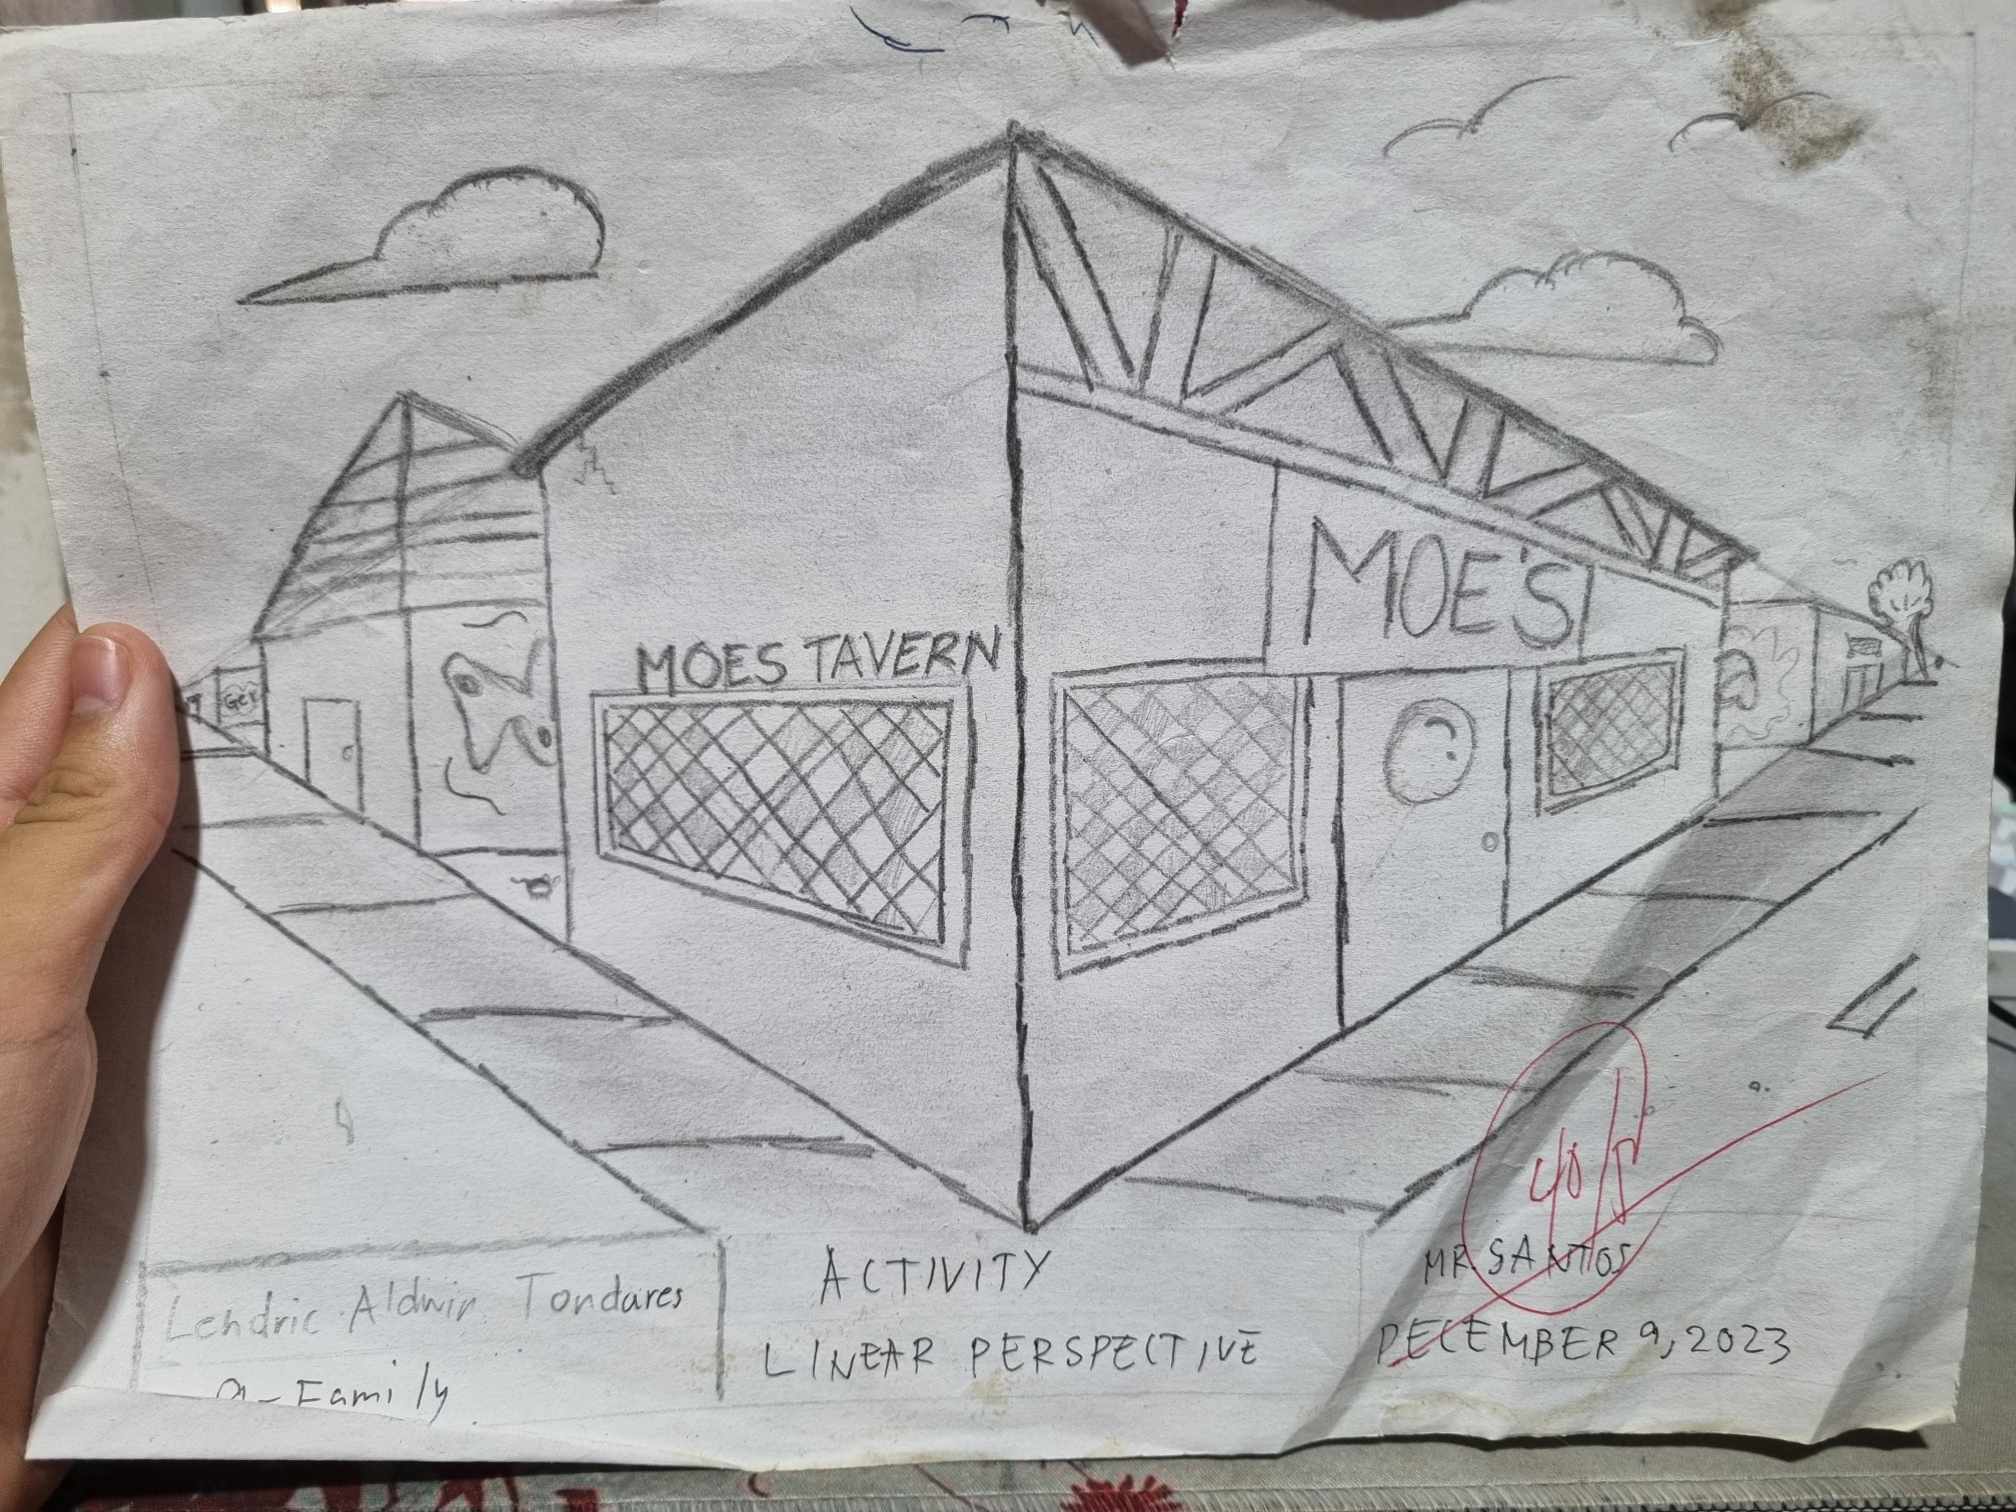 MOE'S
MOES TAVERN
Lendric Aldwin Tondares
9-Family
ACTIVITY
LINEAR PERSPECTIVE
40/
MR. SANTOS
DECEMBER 9, 2023